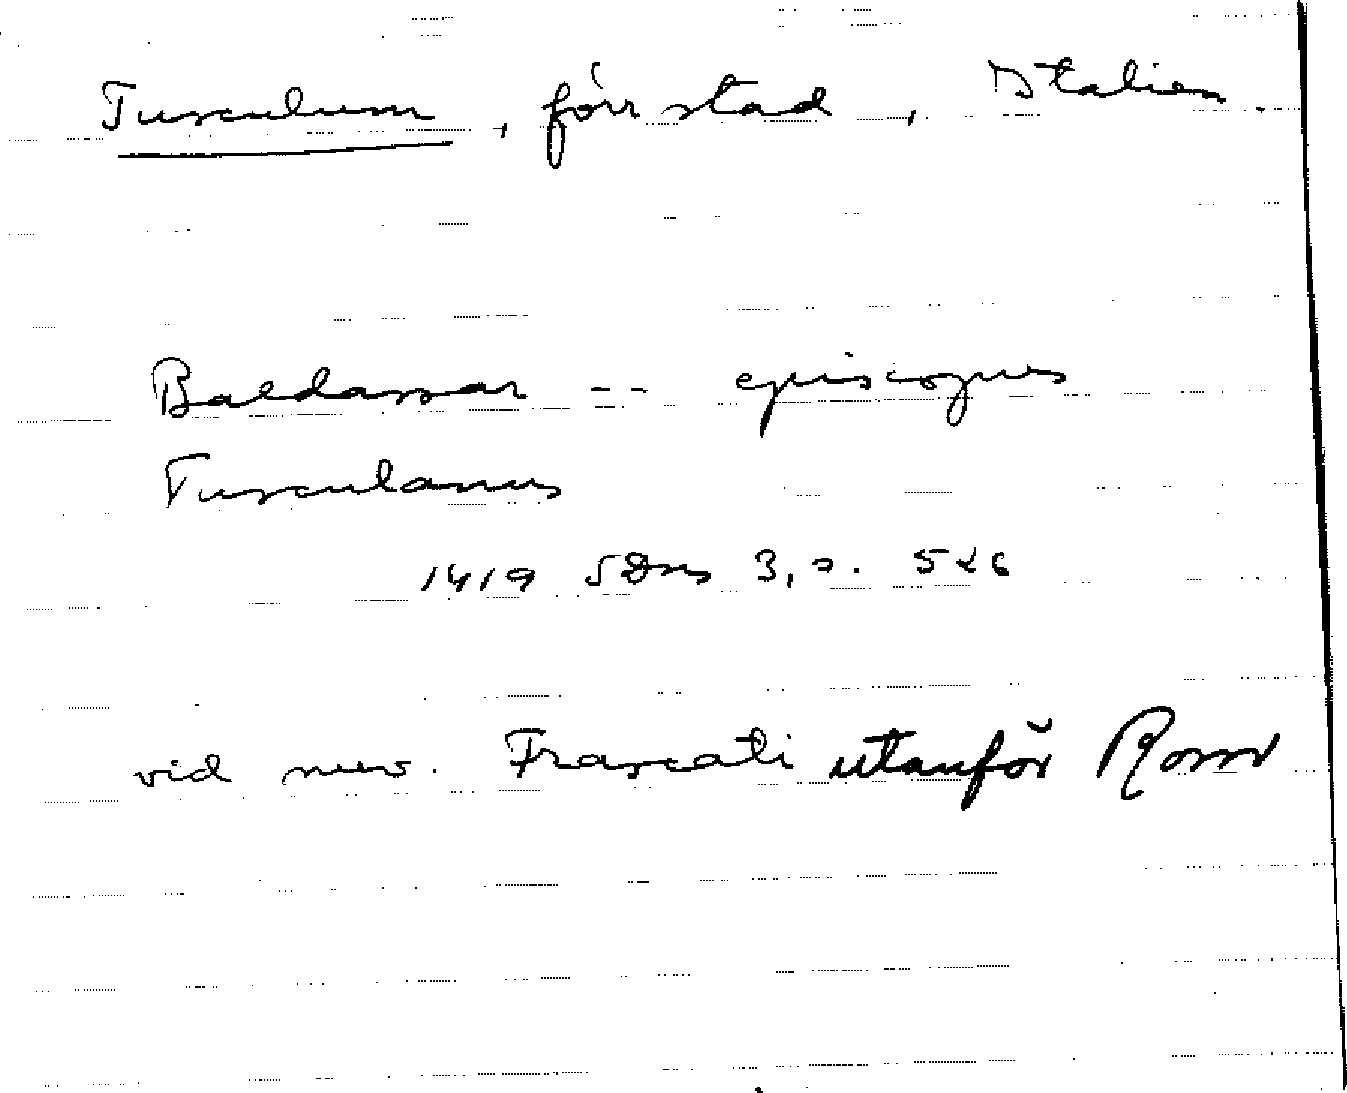 Tusculum, förr stad, Italien.
Baldassar -- episcopus
Tusculanus
1419 SDns 3, s. 526
vid nuv. Frascati utanför Rom